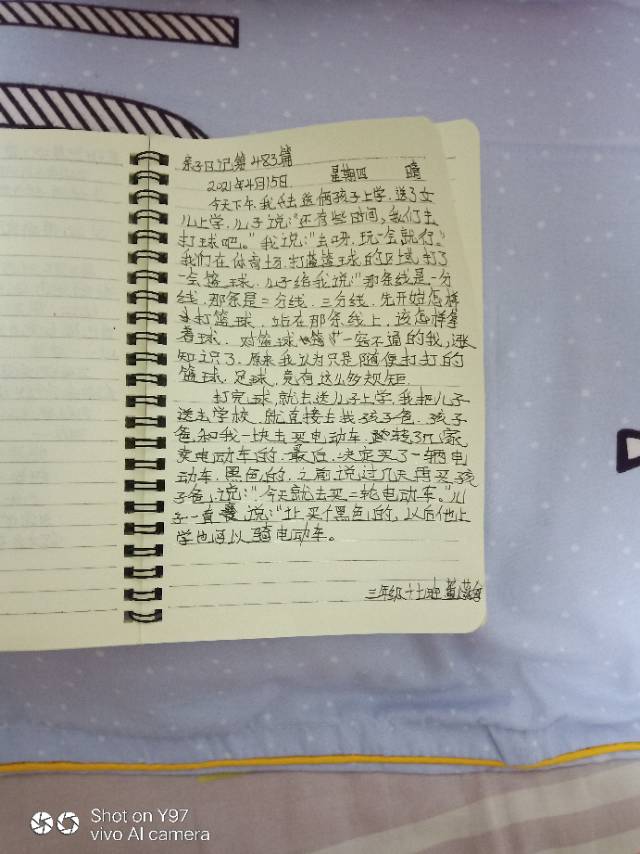 亲子日记第483篇
2021年4月15日 星期四 晴
今天下午,我去送俩孩子上学,送了女
儿上学,儿子说:"还有些时间,我们去
打球吧。"我说:"去呀,玩一会就行。"
我们在体育场,打蓝篮球的区域,打了
一会篮球,儿子给我说:"那条线是一分
线,那条是二分线,三分线,先开始怎样
打篮球,站在那条线上,该怎样拿
着球,对篮球一窍不通的我,涨
知识了,原来我认为只是随便打打的
篮球,足球,竟有这么多规矩。
打完球,就去送儿子上学,我把儿子
送去学校,就直接去找孩子爸,孩子
爸和我一块去买电动车,转了几家
卖电动车的,最后,决定买了一辆电
动车,黑色的,之前说过几天再买,孩
子爸说:"今天就去买二轮电动车。"儿
子一直说:"让买个黑色的,以后他上
学也可以骑电动车。
三年级十七班
Shot on Y97
vivo AI camera